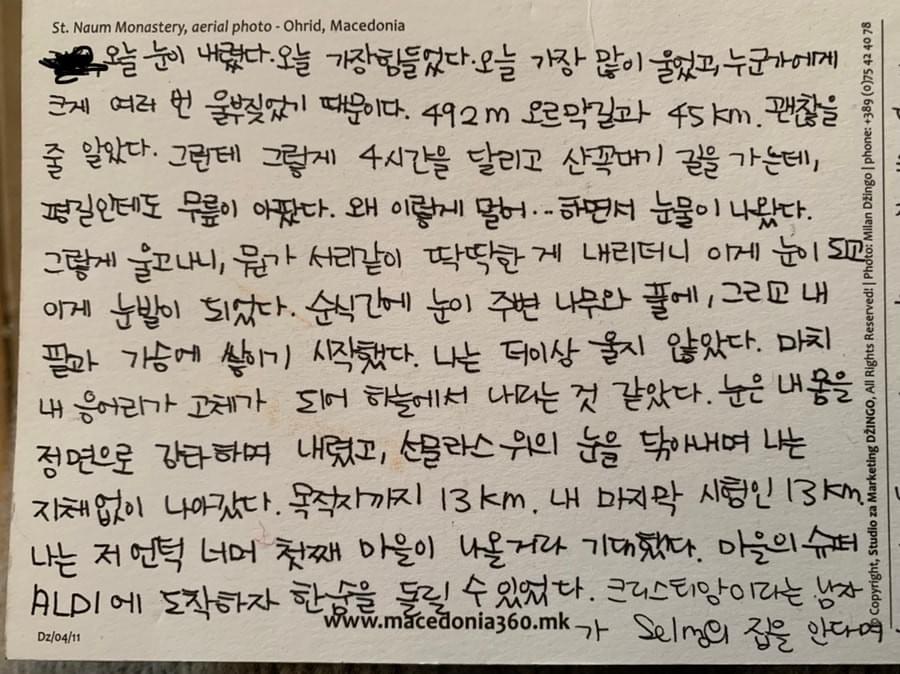 St. Naum Monastery, aerial photo - Ohrid, Macedonia
오늘 눈이 내렸다. 오늘 가장힘들었다. 오늘 가장 많이 울었고, 누군가에게
크게 여러 번 울부짖었기 때문이다. 492m 오르막길과 45km. 괜찮을
줄 알았다. 그런데 그렇게 4시간을 달리고 산꼭대기 길을 가는데,
평길인데도 무릎이 아팠다. 왜 이렇게 멀어... 하면서 눈물이 나왔다.
그렇게 울고나니, 뭔가 서리같이 딱딱한 게 내리더니 이게 눈이 되고
이게 눈발이 되었다. 순식간에 눈이 주변 나무와 풀에, 그리고 내
팔과 가슴에 쌓이기 시작했다. 나는 더이상 울지 않았다. 마치
내 응어리가 고체가 되어 하늘에서 내리는 것 같았다. 눈은 내 몸을
정면으로 강타하며 내렸고, 선글라스 위의 눈을 닦아내며 나는
지체없이 나아갔다. 목적지까지 13km. 내 마지막 시험인 13km.
나는 저 언덕 너머 첫째 마을이 나올거라 기대했다. 마을의 슈퍼
ALDI에 도착하자 한숨을 돌릴 수 있었다. 크리스티앙이라는 남자
가 의 집을 안다며
www.macedonia360.mk
Dz/04/11
© Copyright, Studio za Marketing DŽINGO, All Rights Reserved! | Photo: Milan Džingo | phone: +389 (0)75 42 40 78